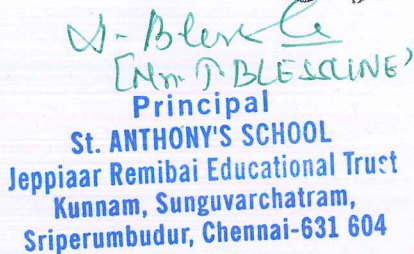 [Mrs. J. BLESSLINE]
Principal
St. ANTHONY'S SCHOOL
Jeppiaar Remibai Educational Trust
Kunnam, Sunguvarchatram,
Sriperumbudur, Chennai-631 604